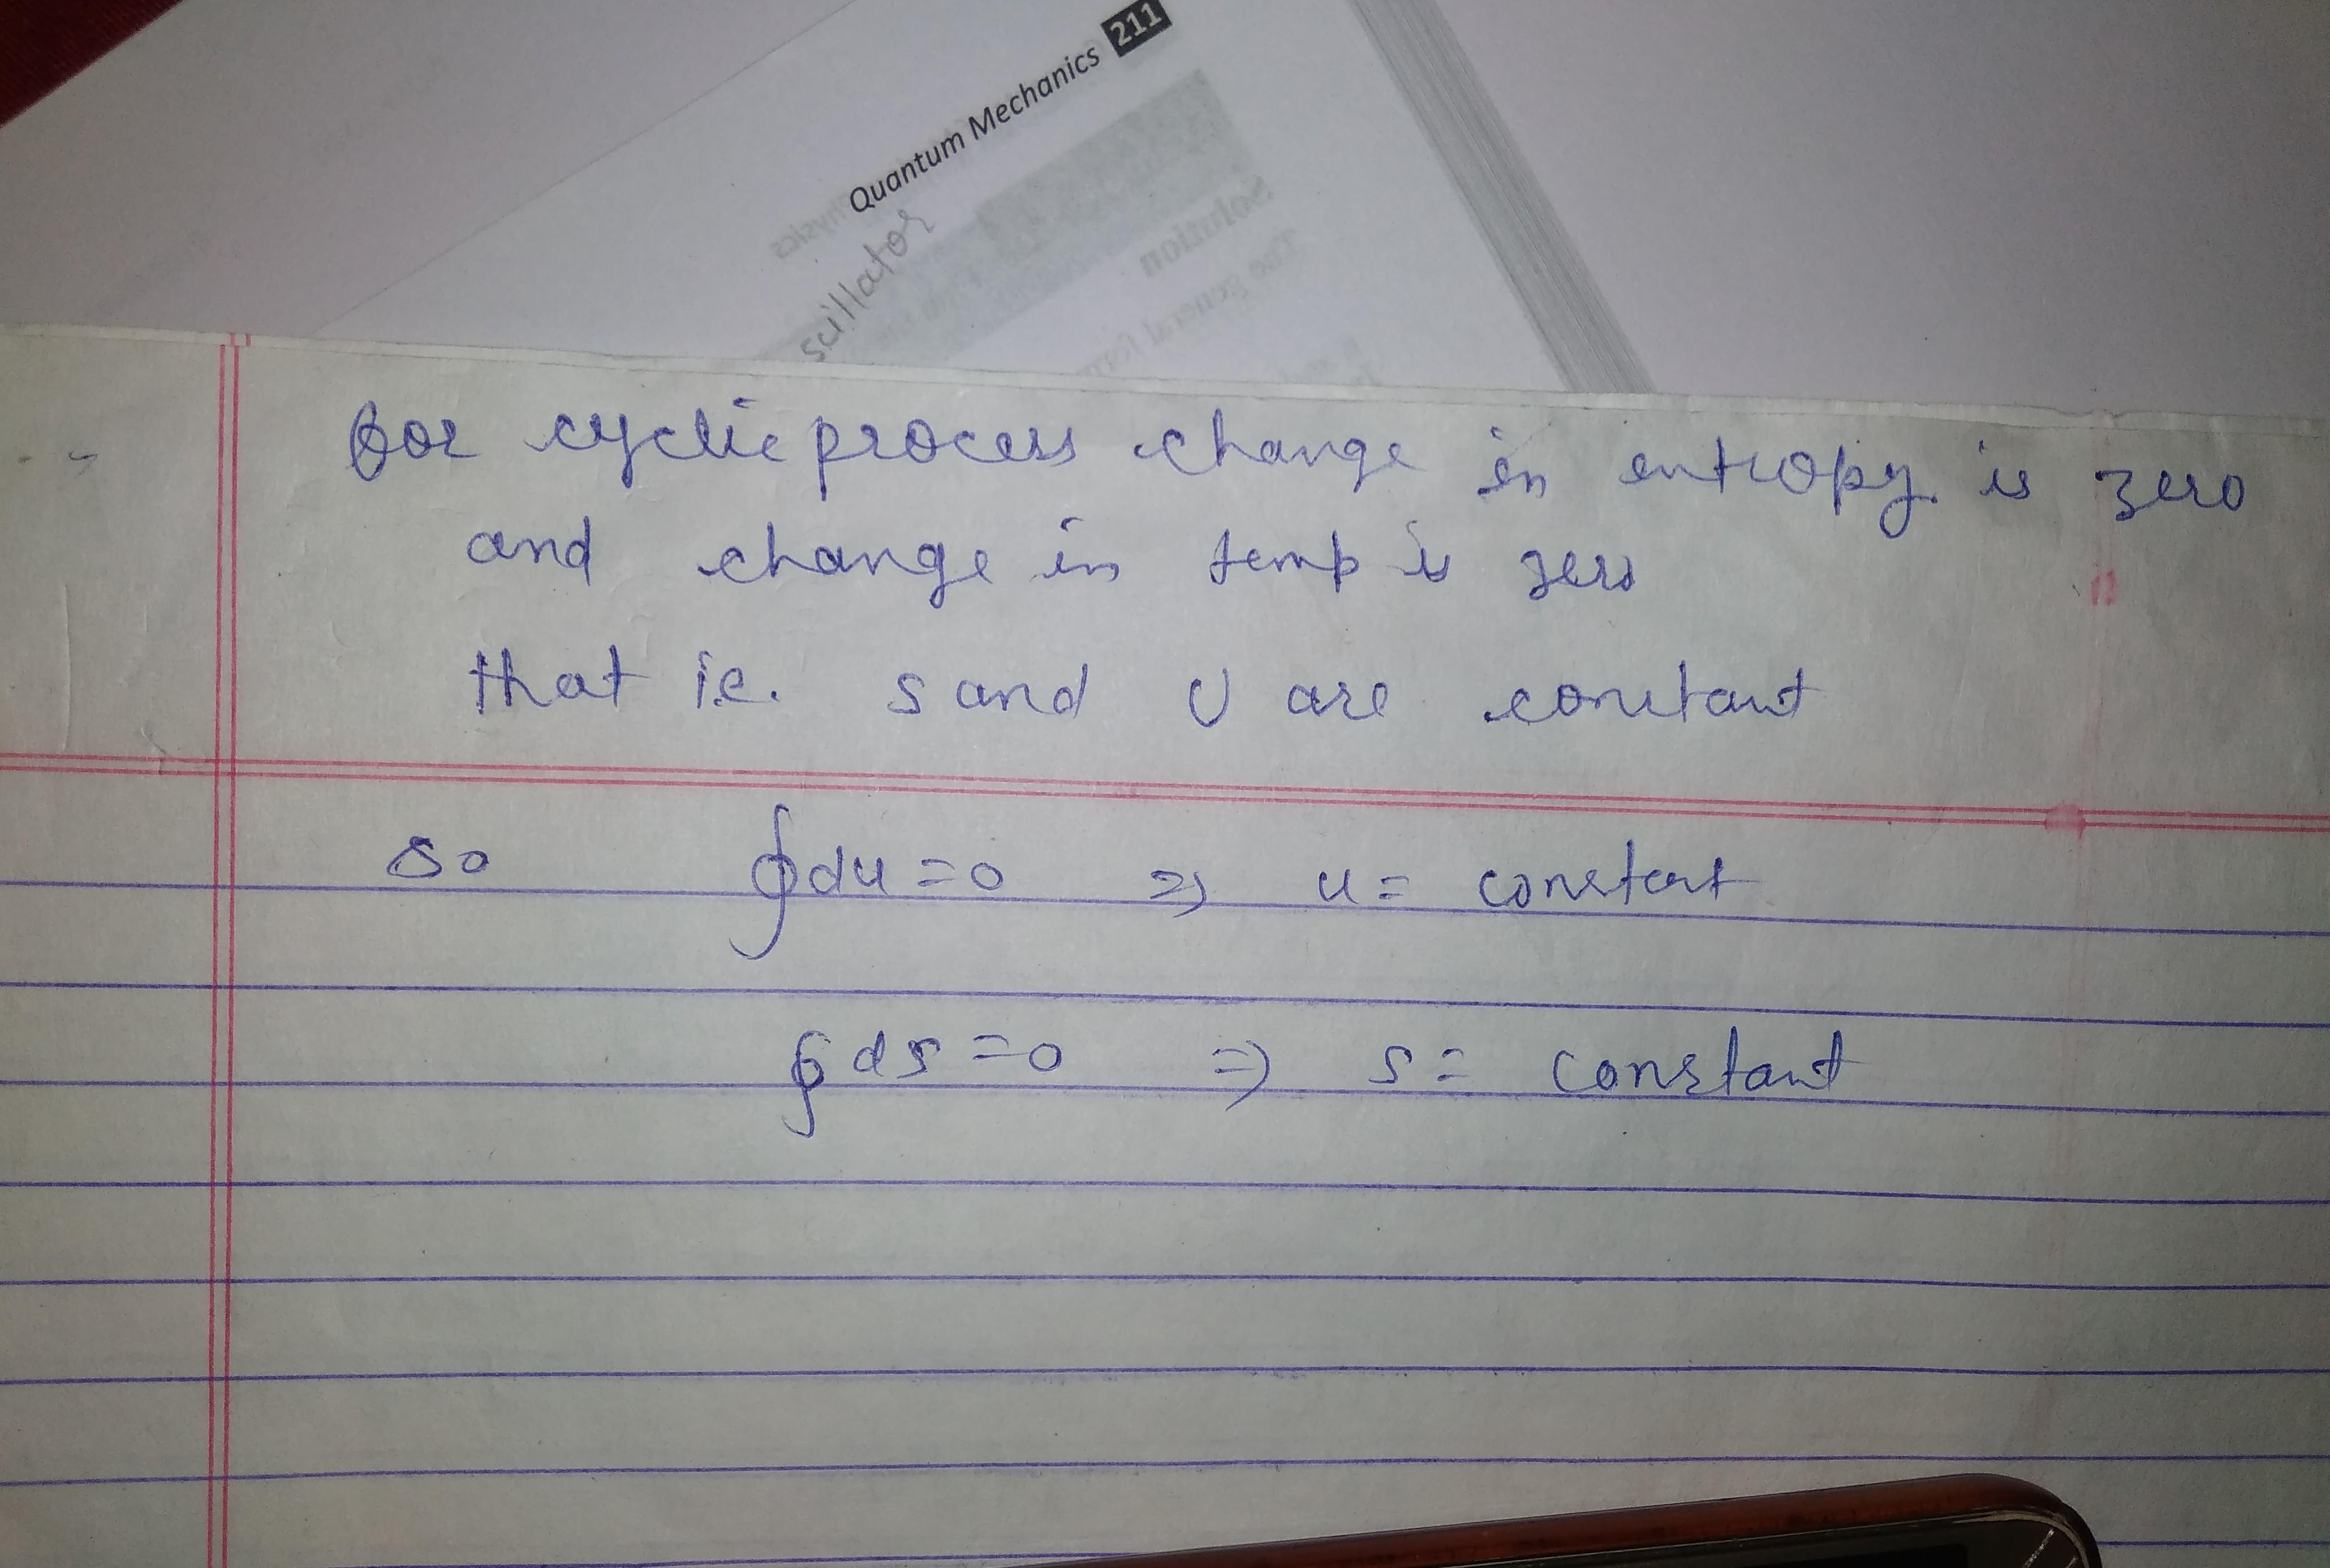 Quantum Mechanics 211
scillator
Solution
The general form
for cyclic process change in entropy is zero
and change in temp is zero
that i.e. S and U are constant
so ∮du=0 ⇒ u= constant
∮ds=0 ⇒ s= constant